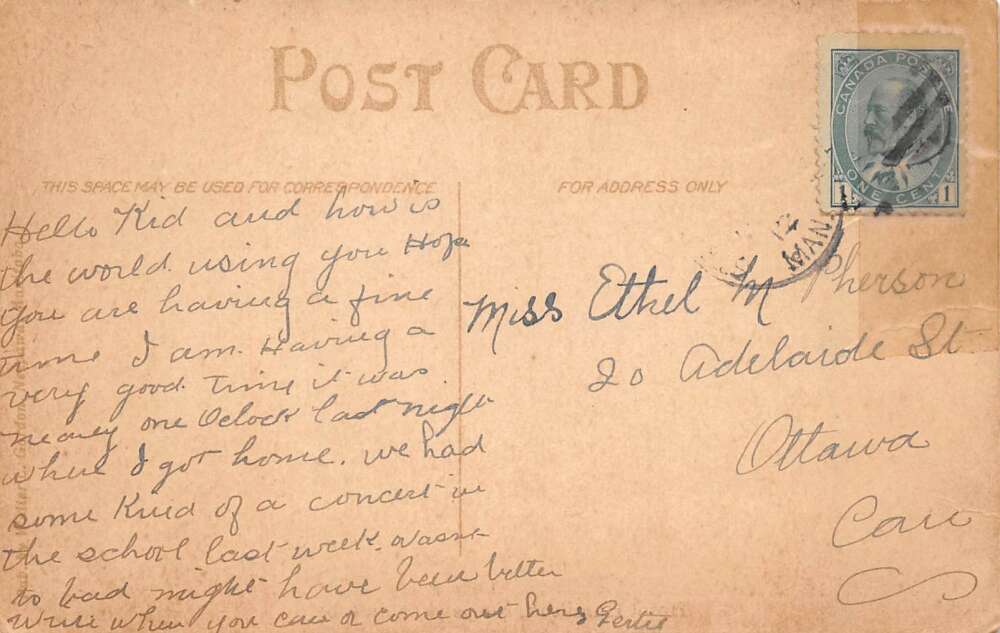 POST CARD
CANADA POSTAGE
ONE CENT
1 1
MAN.
THIS SPACE MAY BE USED FOR CORRESPONDENCE
FOR ADDRESS ONLY
Hello Kid and how is
the world using you Hope
you are having a fine
time I am Having a
very good time it was
nearly one Oclock last night
when I got home. we had
some Kind of a concert in
the school last week. Wasnt
to bad might have been better
Write when you can or come out here Gertie
Miss Ethel McPherson
20 Adelaide St
Ottawa
Can